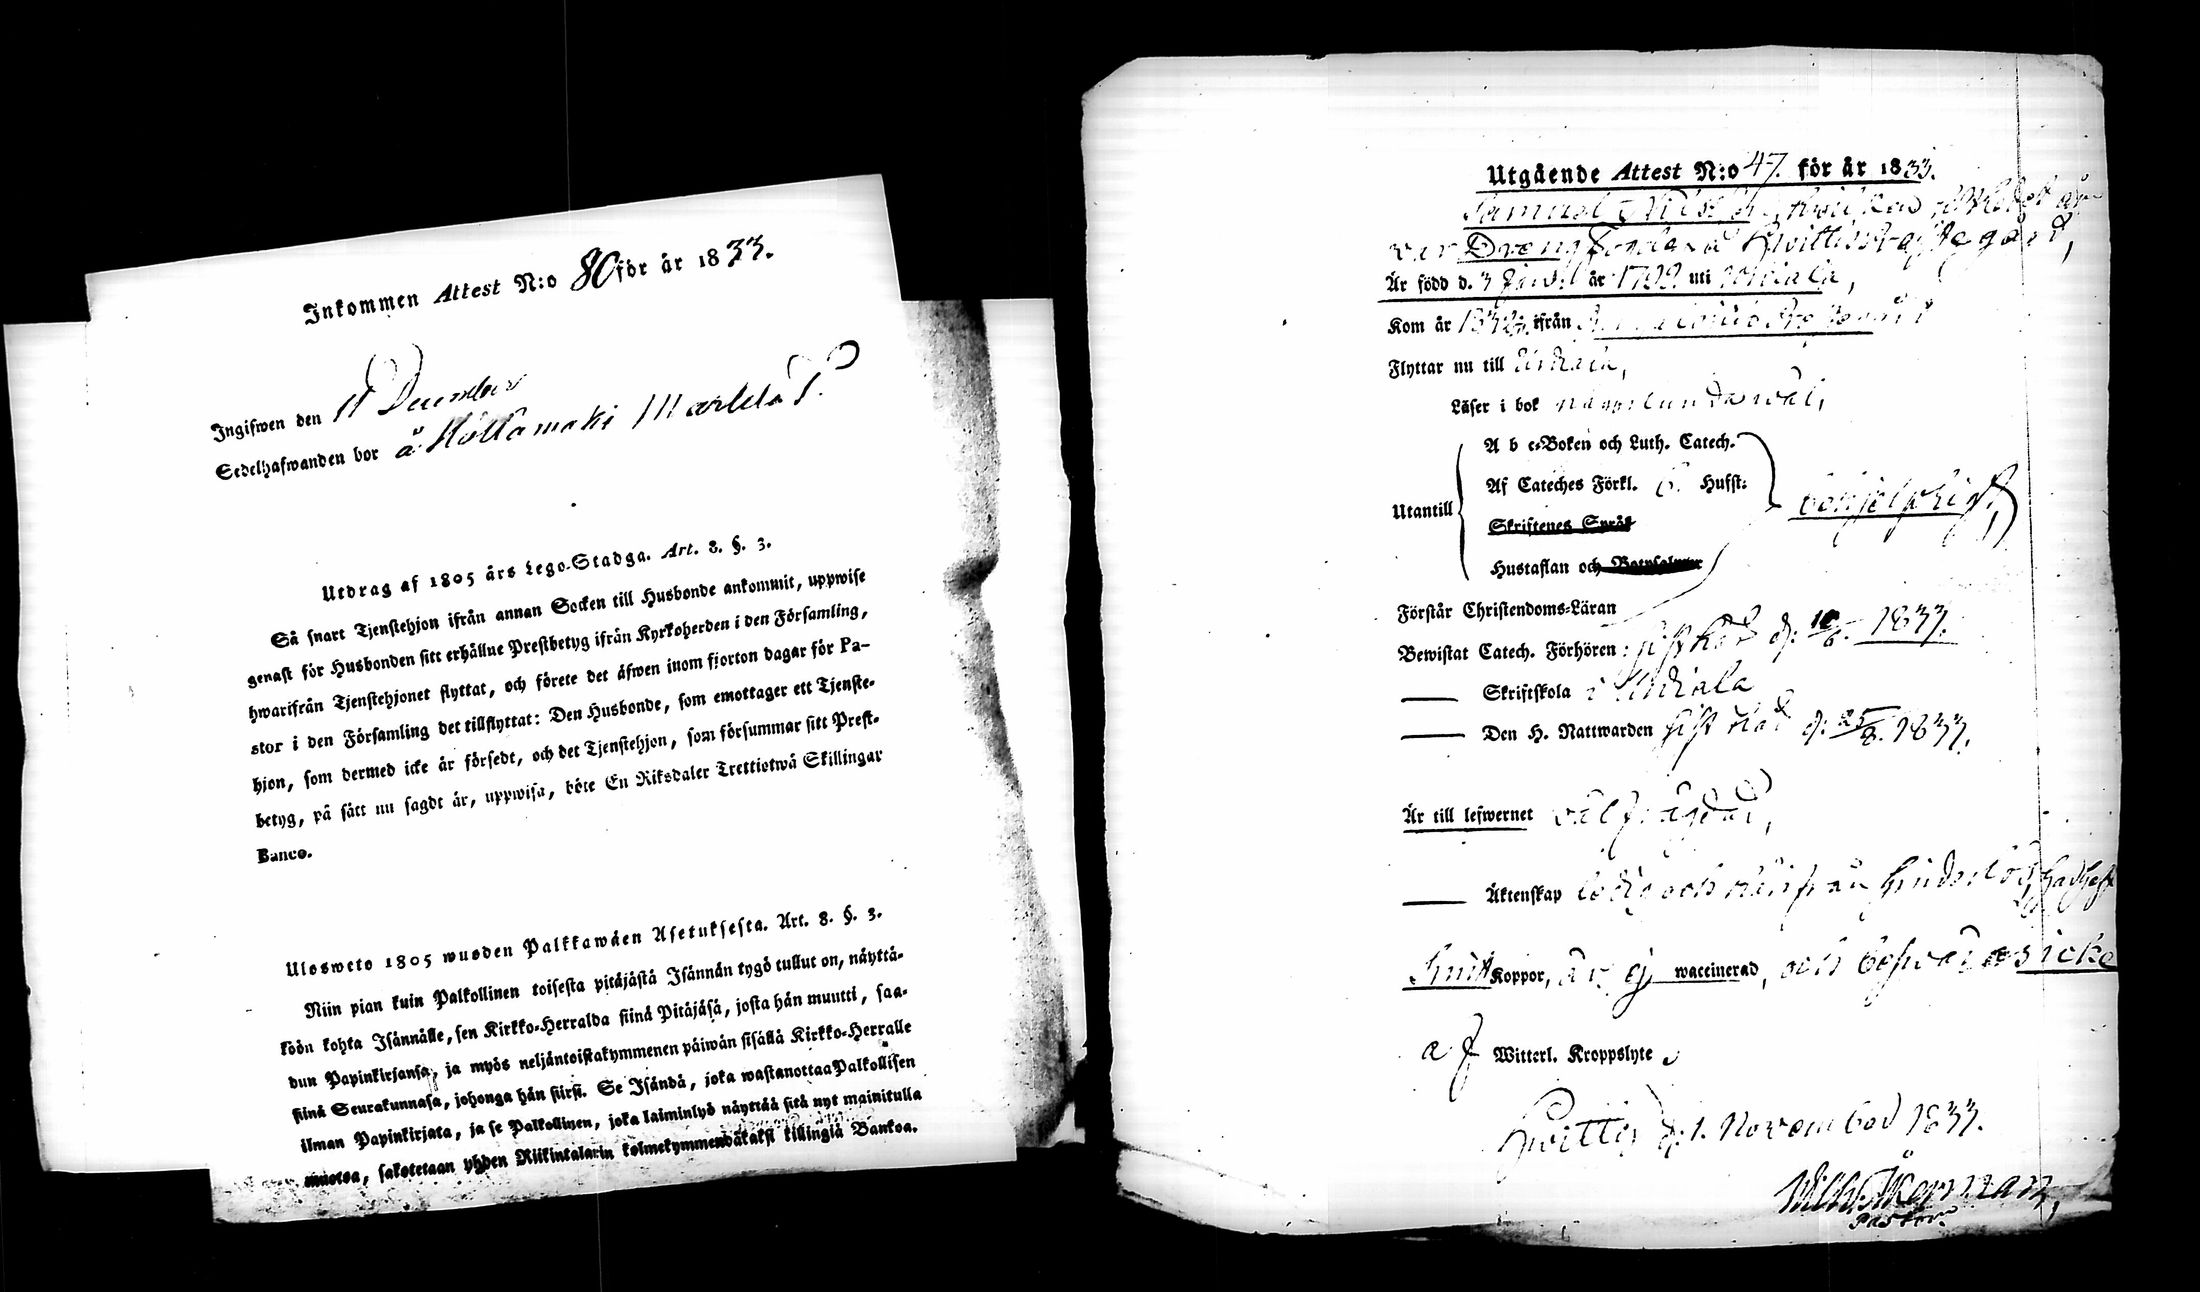 Inkommen Attest N:o 80 för år 1833.
Ingifwen den 11 December
Sedelhafwanden bor å Kollamaki Marttila S.
Utdrag af 1805 års Lego-Stadga. Art. 8. §. 3.
Så snart Tjenstehjon ifrån annan Socken till Husbonde ankommit, uppwise
genast för Husbonden sitt erhållne Prestbetyg ifrån Kyrkoherden i den Församling,
hwarifrån Tjenstehjonet flyttat, och förete det äfwen inom fjorton dagar för Pa-
stor i den Församling det tillflyttat: Den Husbonde, som emottager ett Tjenste-
hjon, som dermed icke är försedt, och det Tjenstehjon, som försummar sitt Prest-
betyg, på sätt nu sagdt är, uppwisa, böte En Riksdaler Trettiotwå Skillingar
Banco.
Ulosweto 1805 wuoden Palkkawäen Asetuksesta. Art. 8. §. 3.
Niin pian kuin Palkollinen toisesta pitäjästä Isännän tygö tullut on, näyttä-
köön kohta Isännälle, sen Kirkko-Herralda siinä Pitäjäsä, josta hän muutti, saa-
dun Papinkirjansa, ja myös neljäntoistakymmenen päiwän sisällä Kirkko-Herralle
siinä Seurakunnasa, johonga hän siirsi. Se Isändä, joka wastanottaa Palkollisen
ilman Papinkirjata, ja se Palkollinen, joka laiminlyö näyttää sitä nyt mainitulla
muotoa, sakotetaan yhden Riikintalarin kolmekymmendäkaksi killingiä Bankoa.
Utgående Attest N:o 47. för år 1833.
Samuel
war Dreng å Hwittis Prästegård,
Är född d. 3 år 1799 uti Urdiala,
Kom år ifrån
Flyttar nu till Urdiala,
Läser i bok någorlunda wäl,
A b c-Boken och Luth. Catech.
Af Cateches Förkl. 6. Hufst:
Utantill
Skriftenes Språk
Hustaflan och Botpsalmer
Förstår Christendoms-Läran
Bewistat Catech. Förhören: sist här d: 10/6. 1833.
Skriftskola i Urdiala
Den H. Nattwarden sist här d: 25/8. 1833.
Är till lefwernet wälfrägdad,
Äktenskap ledig och härifrån hinderlös, hadhaft
Små Koppor, är ej waccinerad, och beswäras icke
af Witterl. Kroppslyte
Hwittis d: 1. November 1833.
Pastor.